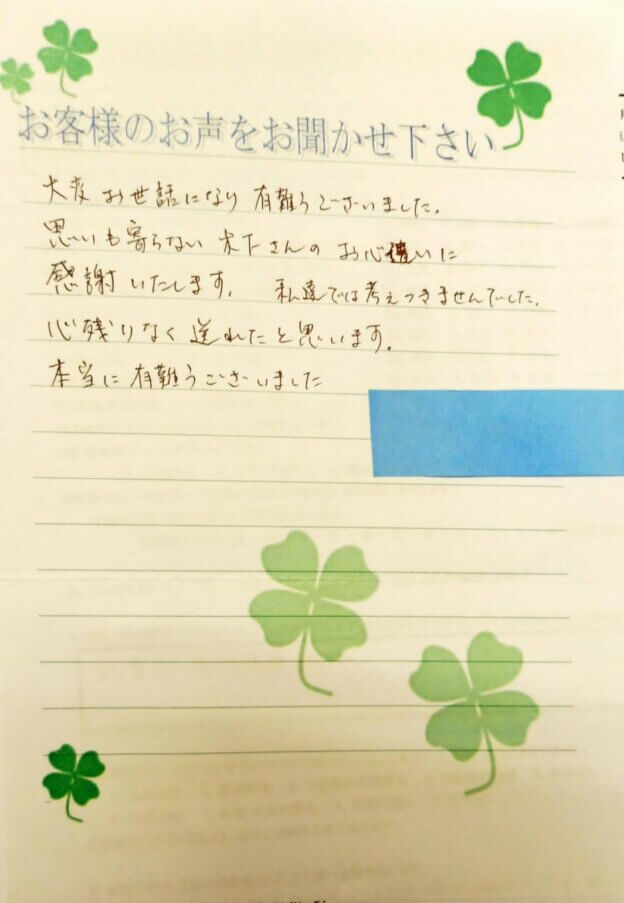 お客様のお声をお聞かせ下さい
大変お世話になり 有難うございました。
思いも寄らない 木下さんの お心遣いに
感謝いたします。 私達では考えつきませんでした。
心残りなく 送れたと思います。
本当に有難うございました